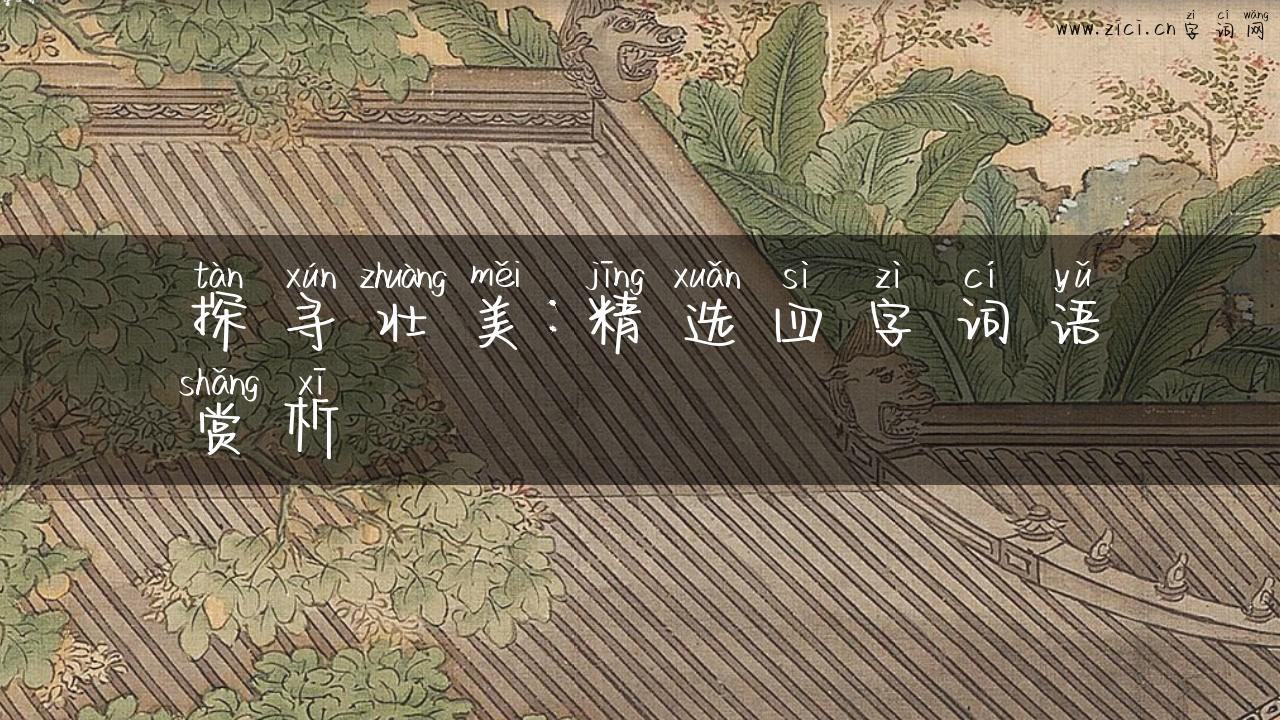 zì cí wǎng
www.zici.cn 字词网
tàn xún zhuàng měi jīng xuǎn sì zì cí yǔ
探寻壮美:精选四字词语
shǎng xī
赏析